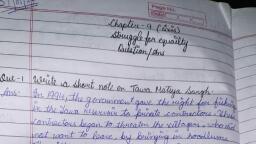 Page No.
Date
Chapter-9 (Civics)
Struggle for equality
Question/Ans
Que-1 Write a short note on Tawa Matsya Sangh.
Ans- In 1994, the government gave the right for fishing
in the Tawa reservoir to private contractors. These
contractors began to threaten the villagers who did
not want to leave, by bringing in hoodlums